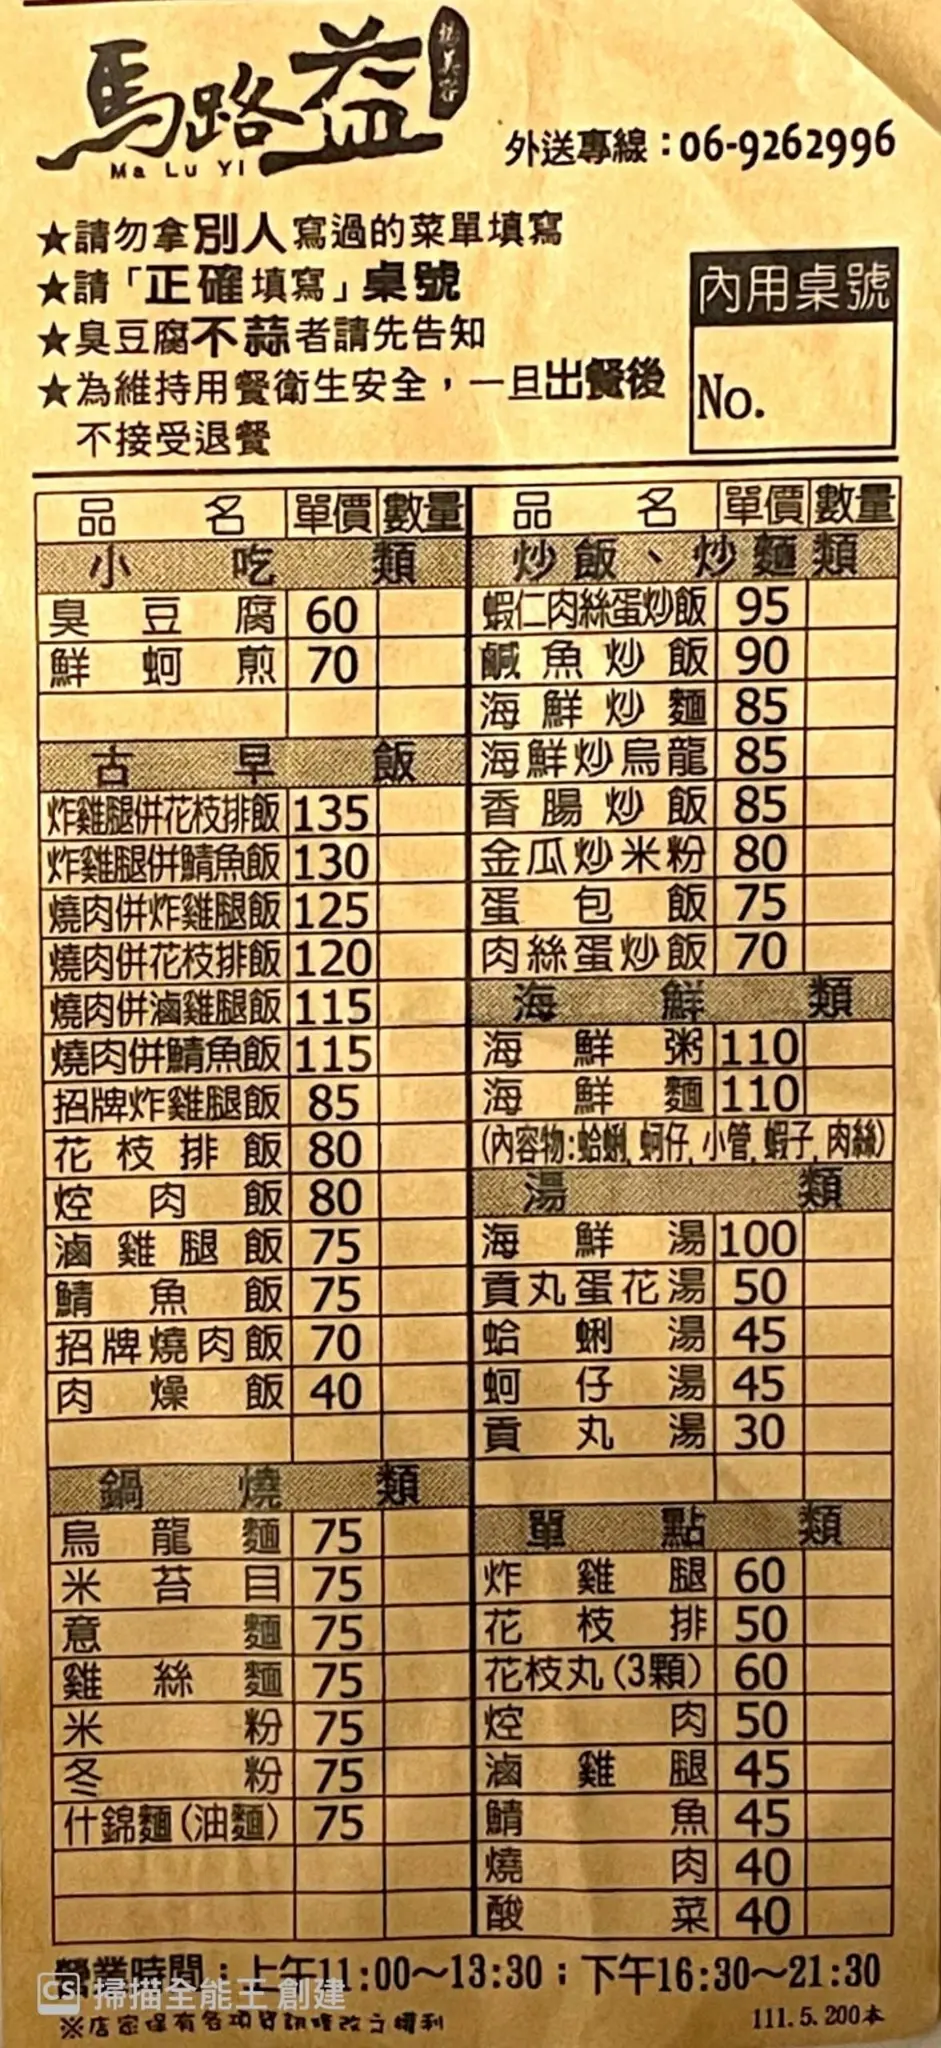 馬路益
Ma Lu Yi
外送專線：06-9262996
★請勿拿別人寫過的菜單填寫
★請「正確填寫」桌號
★臭豆腐不蒜者請先告知
★為維持用餐衛生安全，一旦出餐後
不接受退餐
內用桌號
No.
品名 單價 數量
小吃類
臭豆腐 60
鮮蚵煎 70
古早飯
炸雞腿併花枝排飯 135
炸雞腿併鯖魚飯 130
燒肉併炸雞腿飯 125
燒肉併花枝排飯 120
燒肉併滷雞腿飯 115
燒肉併鯖魚飯 115
招牌炸雞腿飯 85
花枝排飯 80
焢肉飯 80
滷雞腿飯 75
鯖魚飯 75
招牌燒肉飯 70
肉燥飯 40
鍋燒類
烏龍麵 75
米苔目 75
意麵 75
雞絲麵 75
米粉 75
冬粉 75
什錦麵(油麵) 75
品名 單價 數量
炒飯、炒麵類
蝦仁肉絲蛋炒飯 95
鹹魚炒飯 90
海鮮炒麵 85
海鮮炒烏龍 85
香腸炒飯 85
金瓜炒米粉 80
蛋包飯 75
肉絲蛋炒飯 70
海鮮類
海鮮粥 110
海鮮麵 110
(內容物:蛤蜊,蚵仔,小管,蝦子,肉絲)
湯類
海鮮湯 100
貢丸蛋花湯 50
蛤蜊湯 45
蚵仔湯 45
貢丸湯 30
單點類
炸雞腿 60
花枝排 50
花枝丸(3顆) 60
焢肉 50
滷雞腿 45
鯖魚 45
燒肉 40
酸菜 40
營業時間：上午11:00～13:30；下午16:30～21:30
CS 掃描全能王 創建
※店家保有各項資訊修改之權利
111.5.200本